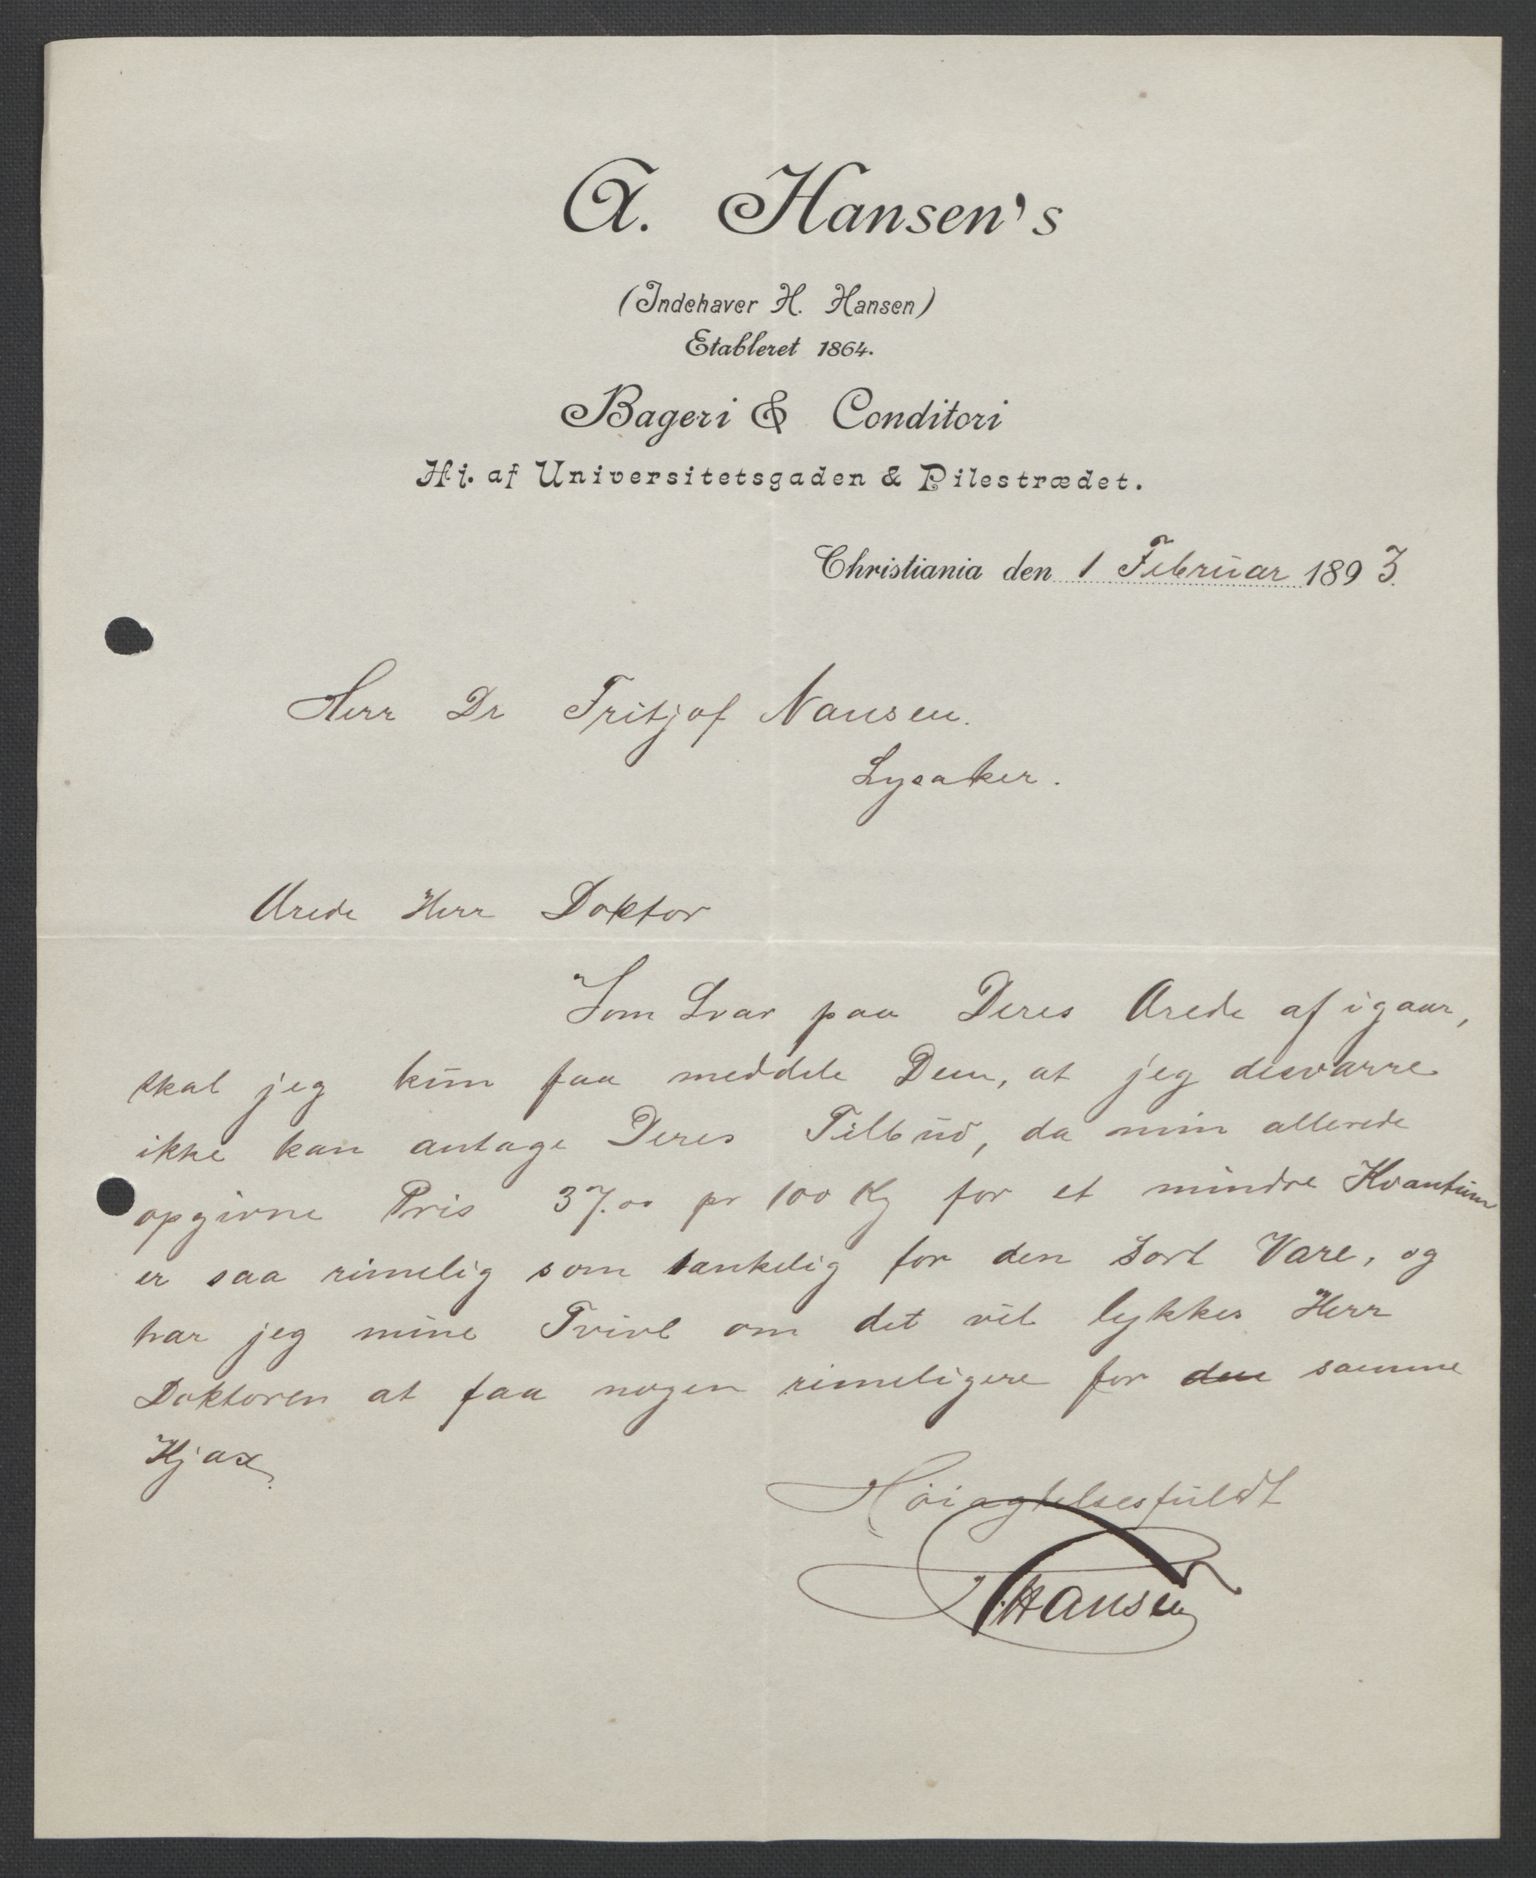 A. Hansen's
(Indehaver H. Hansen)
Etableret 1864.
Bageri & Conditori
Hj. af Universitetsgaden & Pilestrædet.
Christiania den 1 Februar 1893.
Herr Dr Fritjof Nansen.
Lysaker.
Ærede Herr Doktor
Som Svar paa Deres Ærede af igaar,
skal jeg kun faa meddele Dem, at jeg desværre
ikke kan antage Deres Tilbud, da min allerede
opgivne Pris 37.00 pr 100 Kg for et mindre Kvantum
er saa rimelig som tænkelig for den Sort Vare, og
har jeg mine Tvivl om det vil lykkes Herr
Doktoren at faa nogen rimeligere for den samme
Høiagtelsesfuldt
Hansen